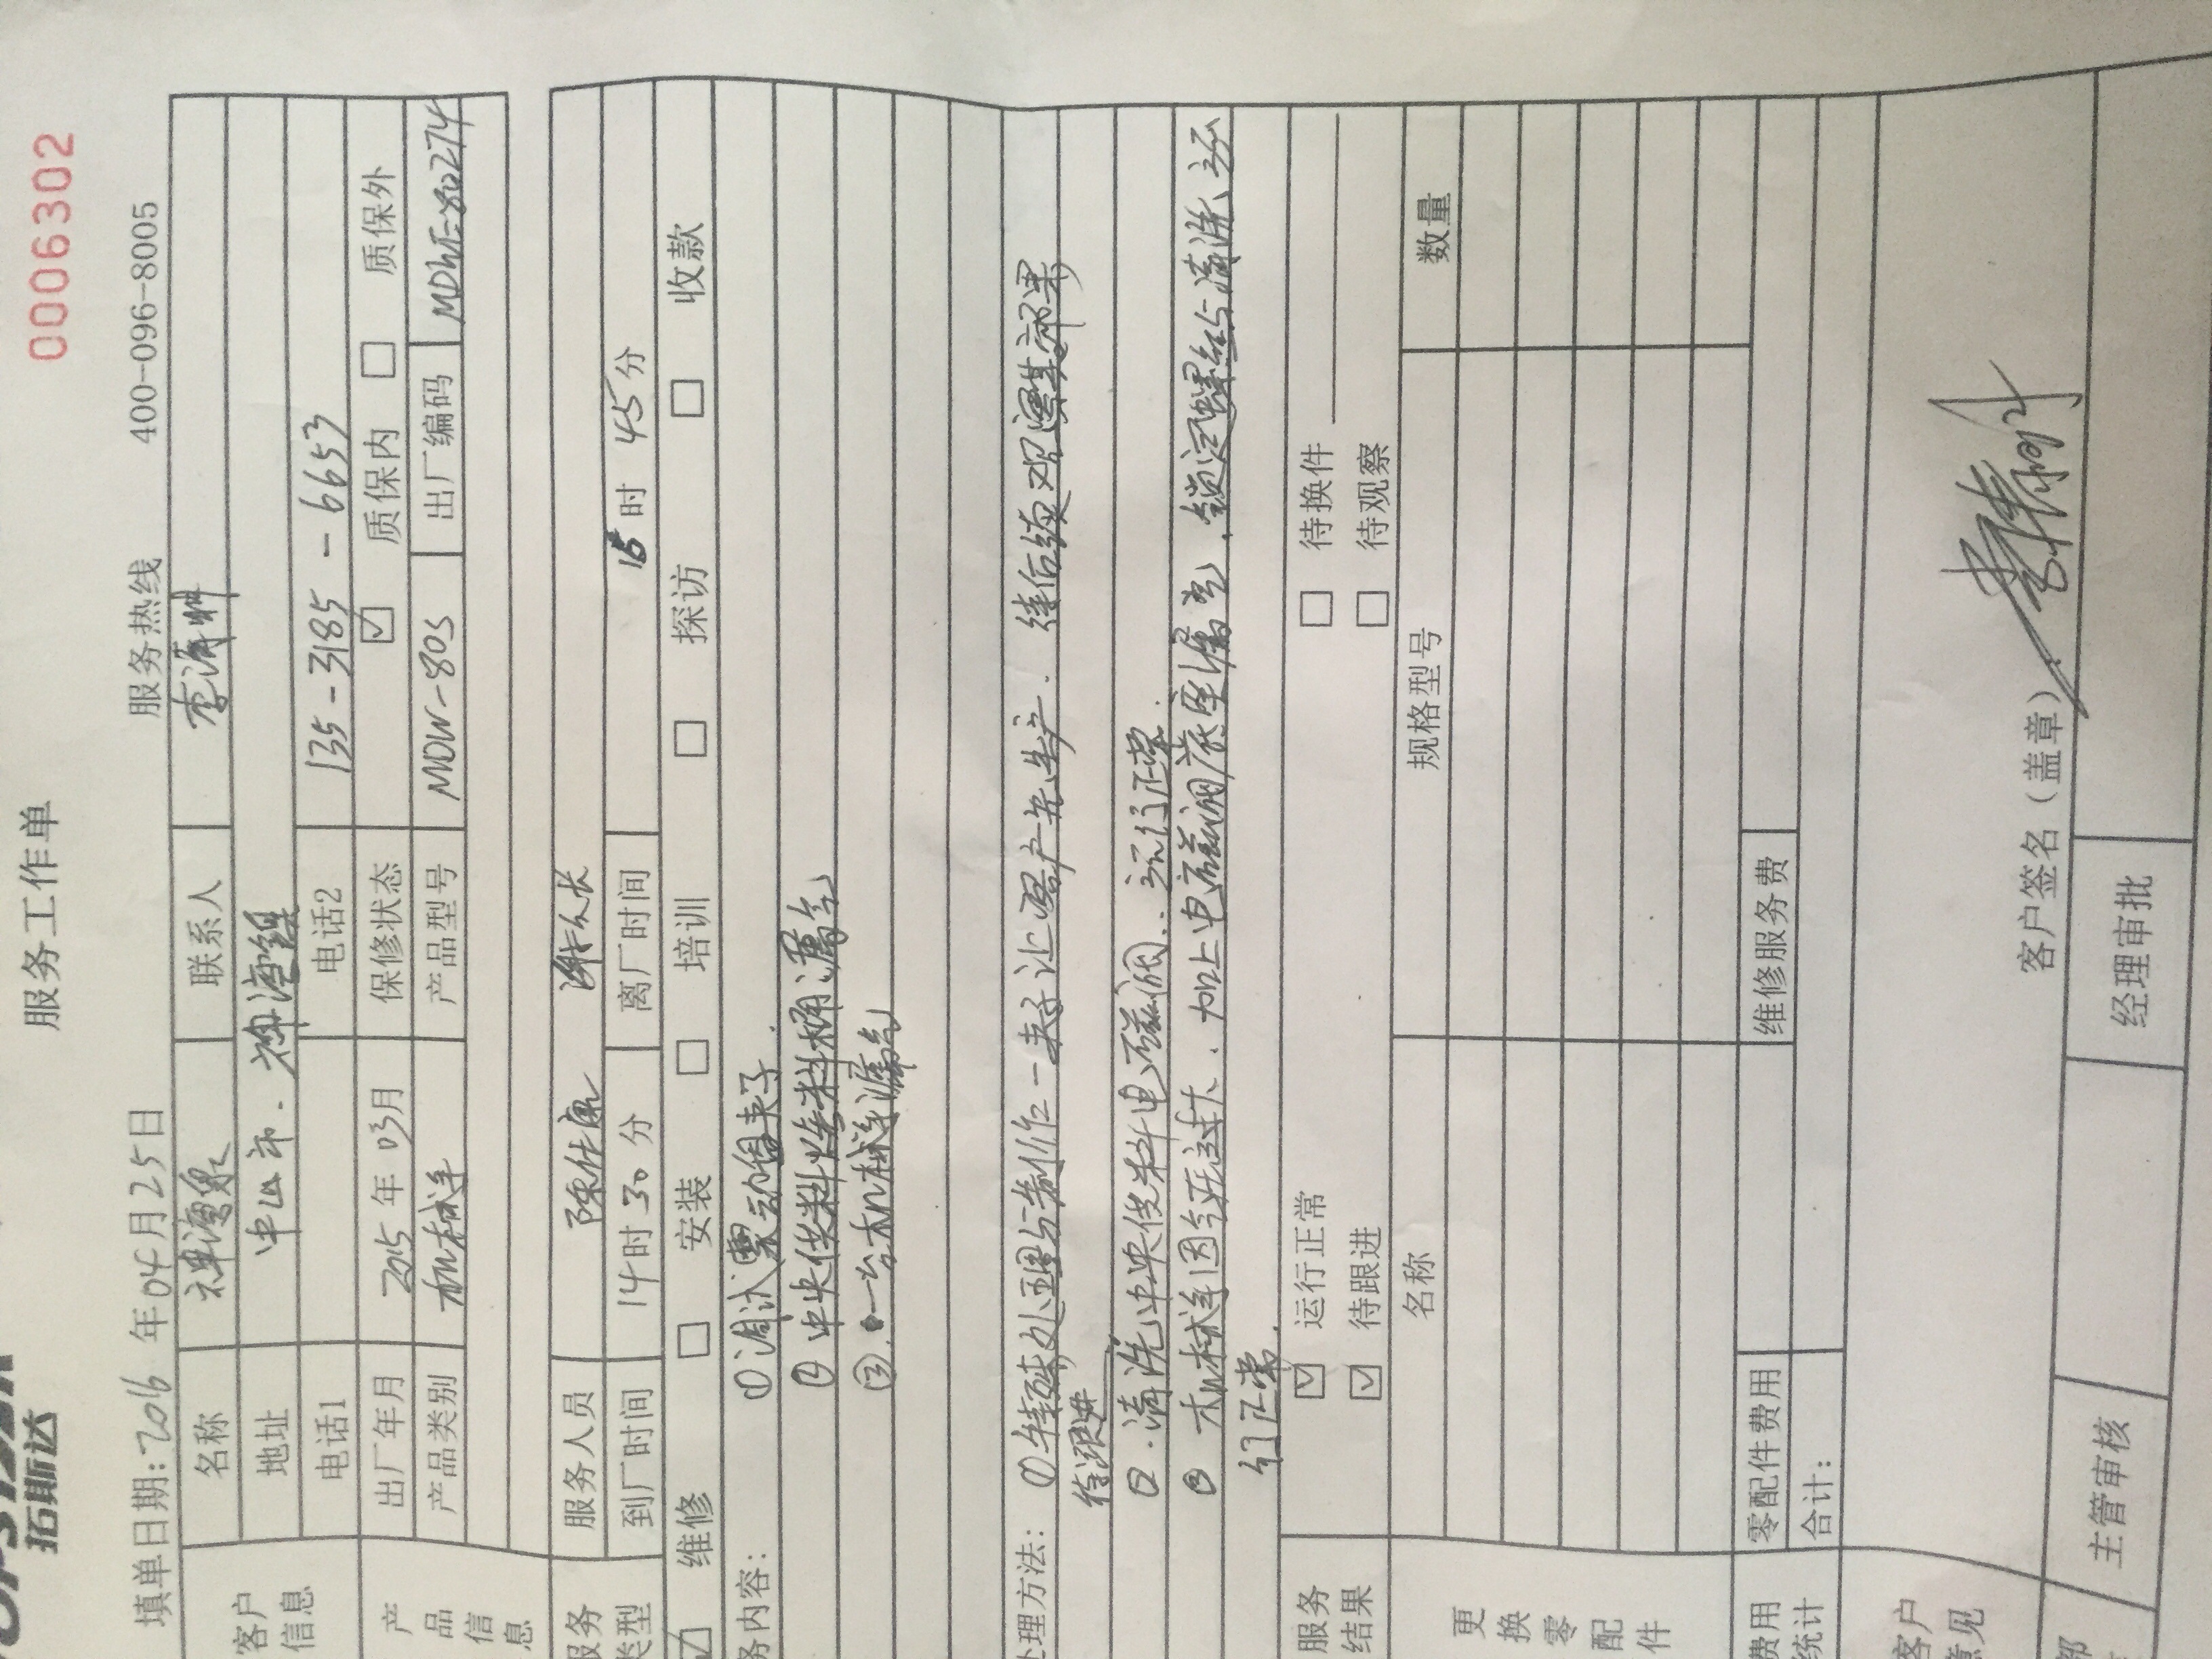 0006302
服务工作单
拓斯达
填单日期: 2016 年 04 月 25 日 服务热线 400-096-8005
客户信息 名称 联系人
地址 中山市.
电话1 电话2 135-3185-6653
产品信息 出厂年月 2015 年 03 月 保修状态 ☑ 质保内 □ 质保外
产品类别 机械手 产品型号 MDW-80S 出厂编码
服务人员 陈仕
到厂时间 14 时 30 分 离厂时间 时 45 分
服务类型
☑ 维修 □ 安装 □ 培训 □ 探访 □ 收款
务内容: ① 调试 夹子.
② 中央供料 料桶漏气
③. 一台机械手漏气
处理方法: ① 处理与制作一夹子让客户先生产. 待后续观 其 果
待跟进
② . 清洗中央供料电磁阀、运行正常.
③ 机械手因气压过大、加上电磁阀底座漏气、锁定螺丝与清洗、运
行正常.
服务结果 ☑ 运行正常 □ 待换件
☑ 待跟进 □ 待观察
更换零配件 名称 规格型号 数量
费用统计 零配件费用 维修服务费
合计:
客户意见
客户签名（盖章）
部 主管审核 经理审批